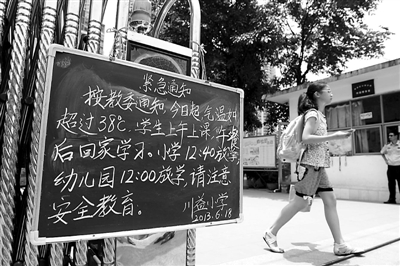 紧急通知
按教委通知,今日起气温如
超过38℃.学生上午上课,午餐
后回家学习。小学12:40放学
幼儿园12:00放学,请注意
安全教育。
川益小学
2013.6.18